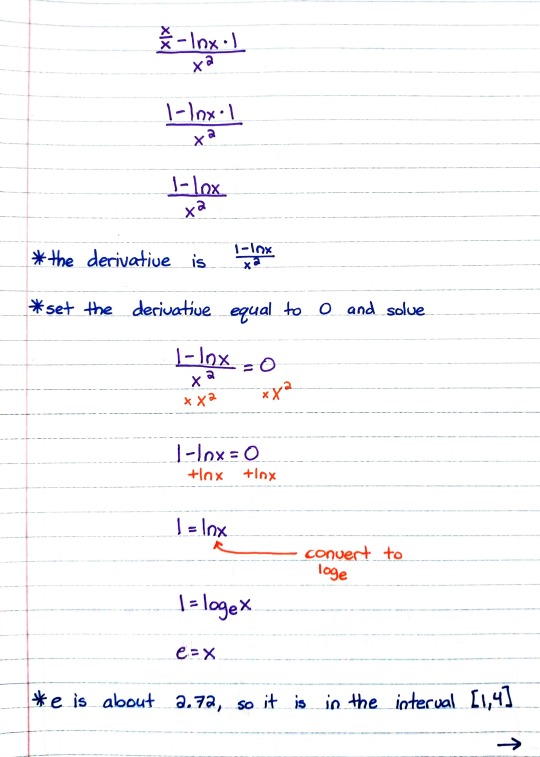 x/x - lnx · 1
x²
1 - lnx · 1
x²
1 - lnx
x²
*the derivative is (1-lnx)/x²
*set the derivative equal to 0 and solve
(1 - lnx)/x² = 0
× x² × x²
1 - lnx = 0
+lnx +lnx
1 = lnx
convert to
logₑ
1 = logₑx
e = x
*e is about 2.72, so it is in the interval [1,4]
→